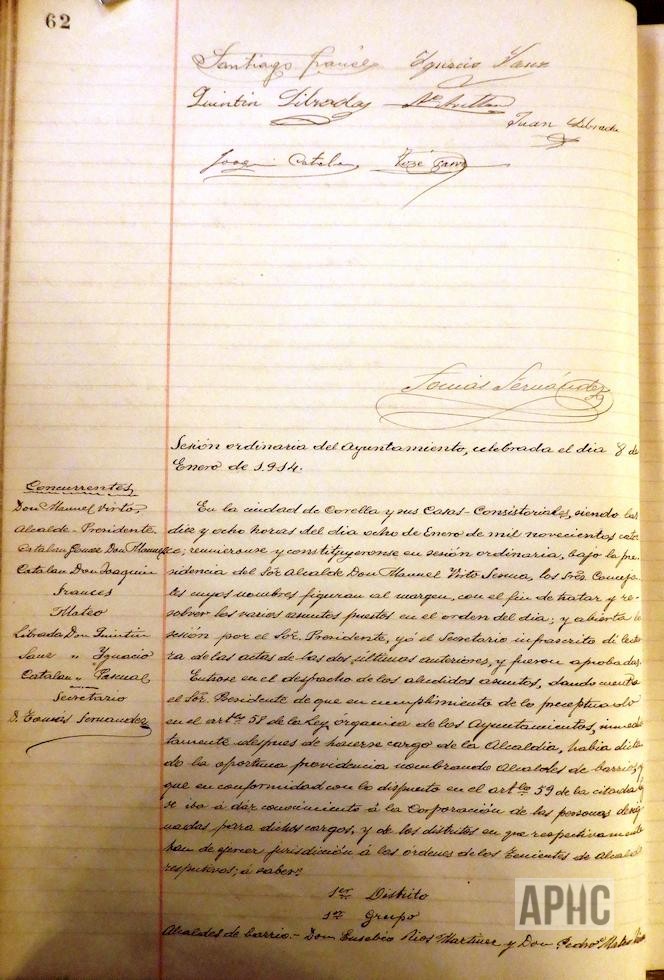 62
Santiago Francés Ygnacio Sanz
Quintín Librada
Juan Librada
Joaquin Catalan José
Tomás Fernández
Sesión ordinaria del Ayuntamiento, celebrada el dia 8 de
Enero de 1.914.
Concurrentes
Don Manuel Virto,
Alcalde-Presidente
Catalan Don Manuel
Catalan Don Joaquin
Francés
Mateo
Librada Don Quintín
Sanz " Ygnacio
Catalan " Pascual
Secretario
D. Tomás Fernandez
En la ciudad de Corella y sus Casas-Consistoriales, siendo las
diez y ocho horas del dia ocho de Enero de mil novecientos cator
ce; reunieronse y constituyeronse en sesión ordinaria, bajo la pre
sidencia del Sor. Alcalde Don Manuel Virto, los Sres. Conceja
les cuyos nombres figuran al margen, con el fin de tratar y re
solver los varios asuntos puestos en el orden del dia; y abierta la
sesión por el Sor. Presidente, yó el Secretario infrascrito di lectu
ra de las actas de las dos últimas anteriores, y fueron aprobadas.
Entróse en el despacho de los aludidos asuntos, dando cuenta
el Sor. Presidente de que en cumplimiento de lo preceptuado
en el artclo 58 de la Ley organica de los Ayuntamientos, inmedia
tamente despues de hacerse cargo de la Alcaldia, habia dicta
do la oportuna providencia nombrando Alcaldes de barrio, y
que en conformidad con lo dispuesto en el artclo 59 de la citada Ley
se iba á dar conocimiento á la Corporación de las personas desig
nadas para dichos cargos, y de los distritos en que respectivamente
han de ejercer jurisdicción á las órdenes de los Tenientes de Alcalde
respectivos; á saber:
1er Distrito
1er Grupo
Alcaldes de barrio.- Don Eusebio Rios Martinez y Don Pedro Mateo
APHC